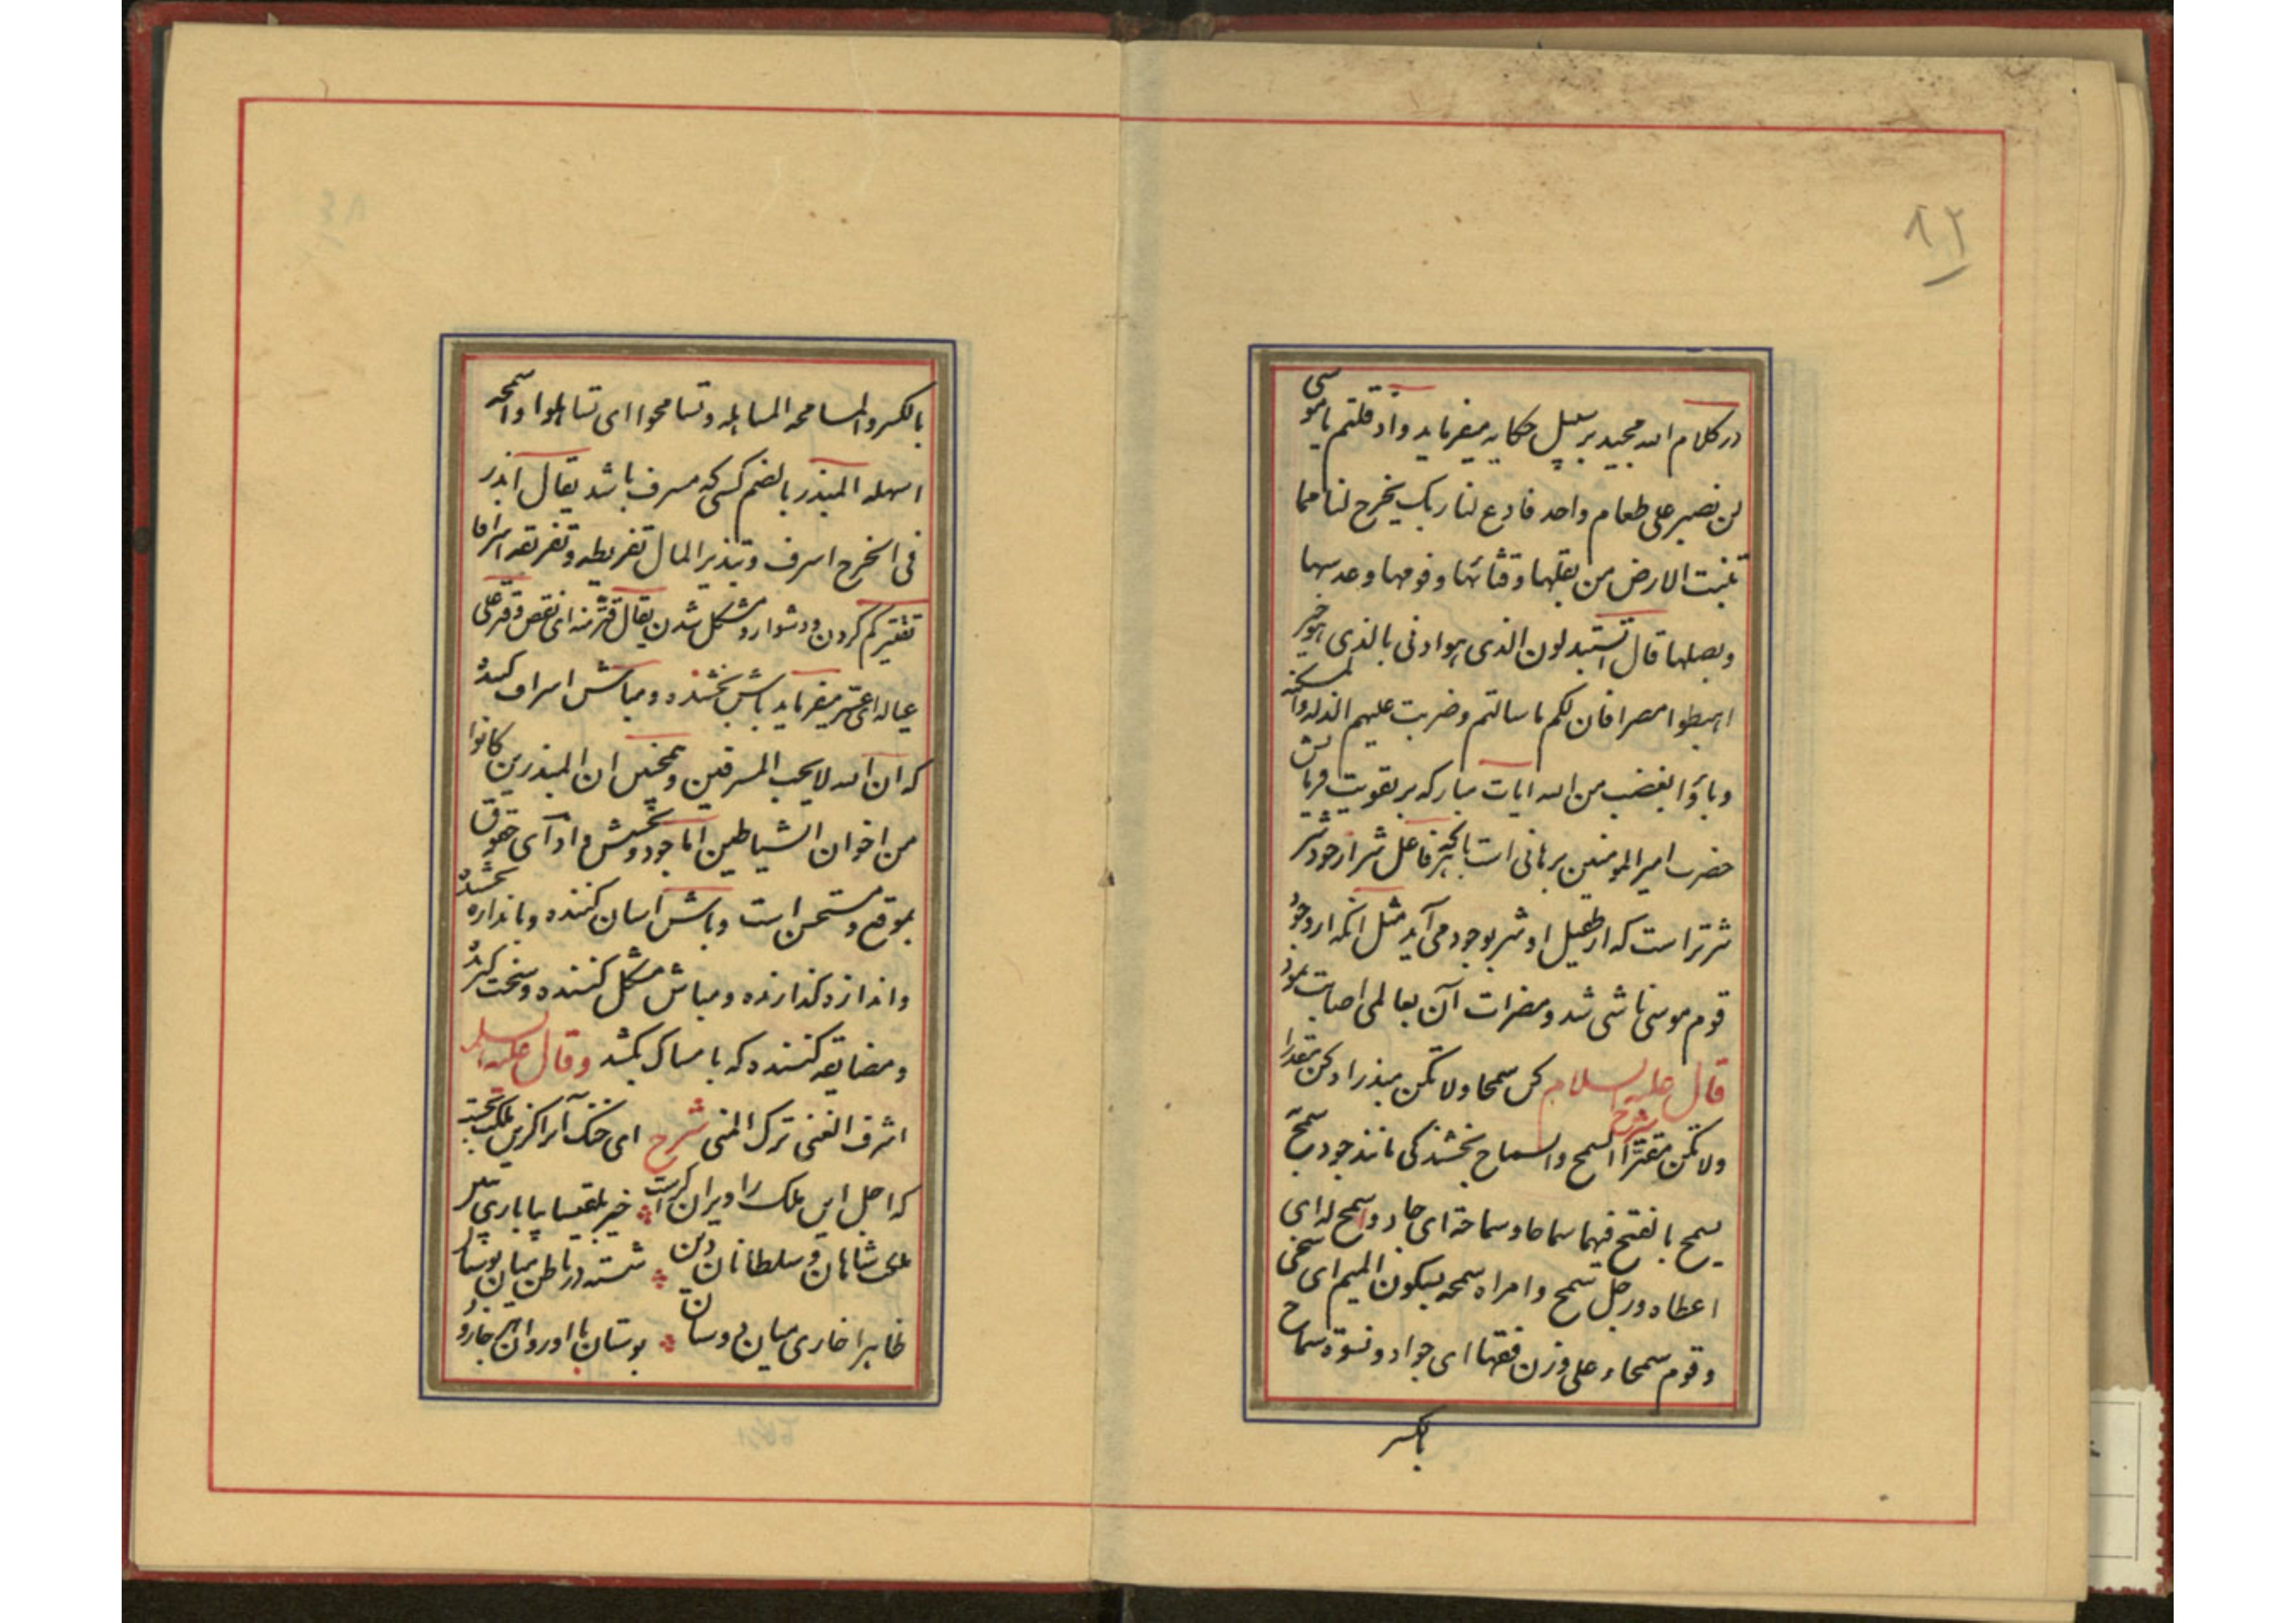 ۸۲
در کلام الله مجید بر سبیل حکایه میفرماید واذ قلتم یا موسی
لن نصبر علی طعام واحد فادع لنا ربک یخرج لنا مما
تنبت الارض من بقلها وقثائها وفومها وعدسها
وبصلها قال اتستبدلون الذی هو ادنی بالذی هو خیر
اهبطوا مصرا فان لکم ما سالتم وضربت علیهم الذله والمسکنه
وباؤا بغضب من الله ایات مبارکه بر تقویت فرمایش
حضرت امیرالمومنین برهانی است بالجمله فاعل شر از خود شر
شرتر است که از طفیل او شر بوجود می آید مثل آنکه از وجود
قوم موسی ناشی شد و مضرات آن بعالمی اصابت نمود
قال علیه السلام کن سمحا ولا تکن مبذرا وکن مقدرا
ولا تکن مقترا شرح السمح والسماح بخشندگی مانند جود سمح
یسمح بالفتح فیهما سماحا وسماحة ای جاد واسمح له ای
اعطاه ورجل سمح وامراه سمحه بسکون المیم ای سخی
وقوم سمحاء علی وزن فقها ای جواد ونسوة سماح
بالکسر
بالکسر والمسامحه المساهله وتسامحوا ای تساهلوا واسمحه
اسهله المبذر بالضم کسی که مسرف باشد یقال ابذر
فی الخرج اسرف وتبذیر المال تفریطه وتفریقه اسرافا
تقتیر کم کردن ودشوار ومشکل شدن یقال قتر منه ای نقص وقتر علی
عیاله ای عسر میفرماید باش بخشنده ومباش اسراف کننده
که ان الله لا یحب المسرفین وهمچنین ان المبذرین کانوا
من اخوان الشیاطین اما جود وبخشش و ادآی حقوق
بموقع ومستحسن است وباش آسان کننده وباندازه بخشنده
واندازه گذارنده ومباش مشکل کننده وسخت گیرنده
ومضایقه کننده که بامساک بکشد وقال علیه السلام
اشرف الغنی ترک المنی شرح ای خنک آنرا کزین ملکت بجست
که اجل این ملک را ویران گرست خیز بلقیسا بیا باری نگر
ملک شاهان و سلطانان دین شسته در باطن میان بوستان
ظاهرا خاری میان دوستان بوستان با او روان هر جا رود